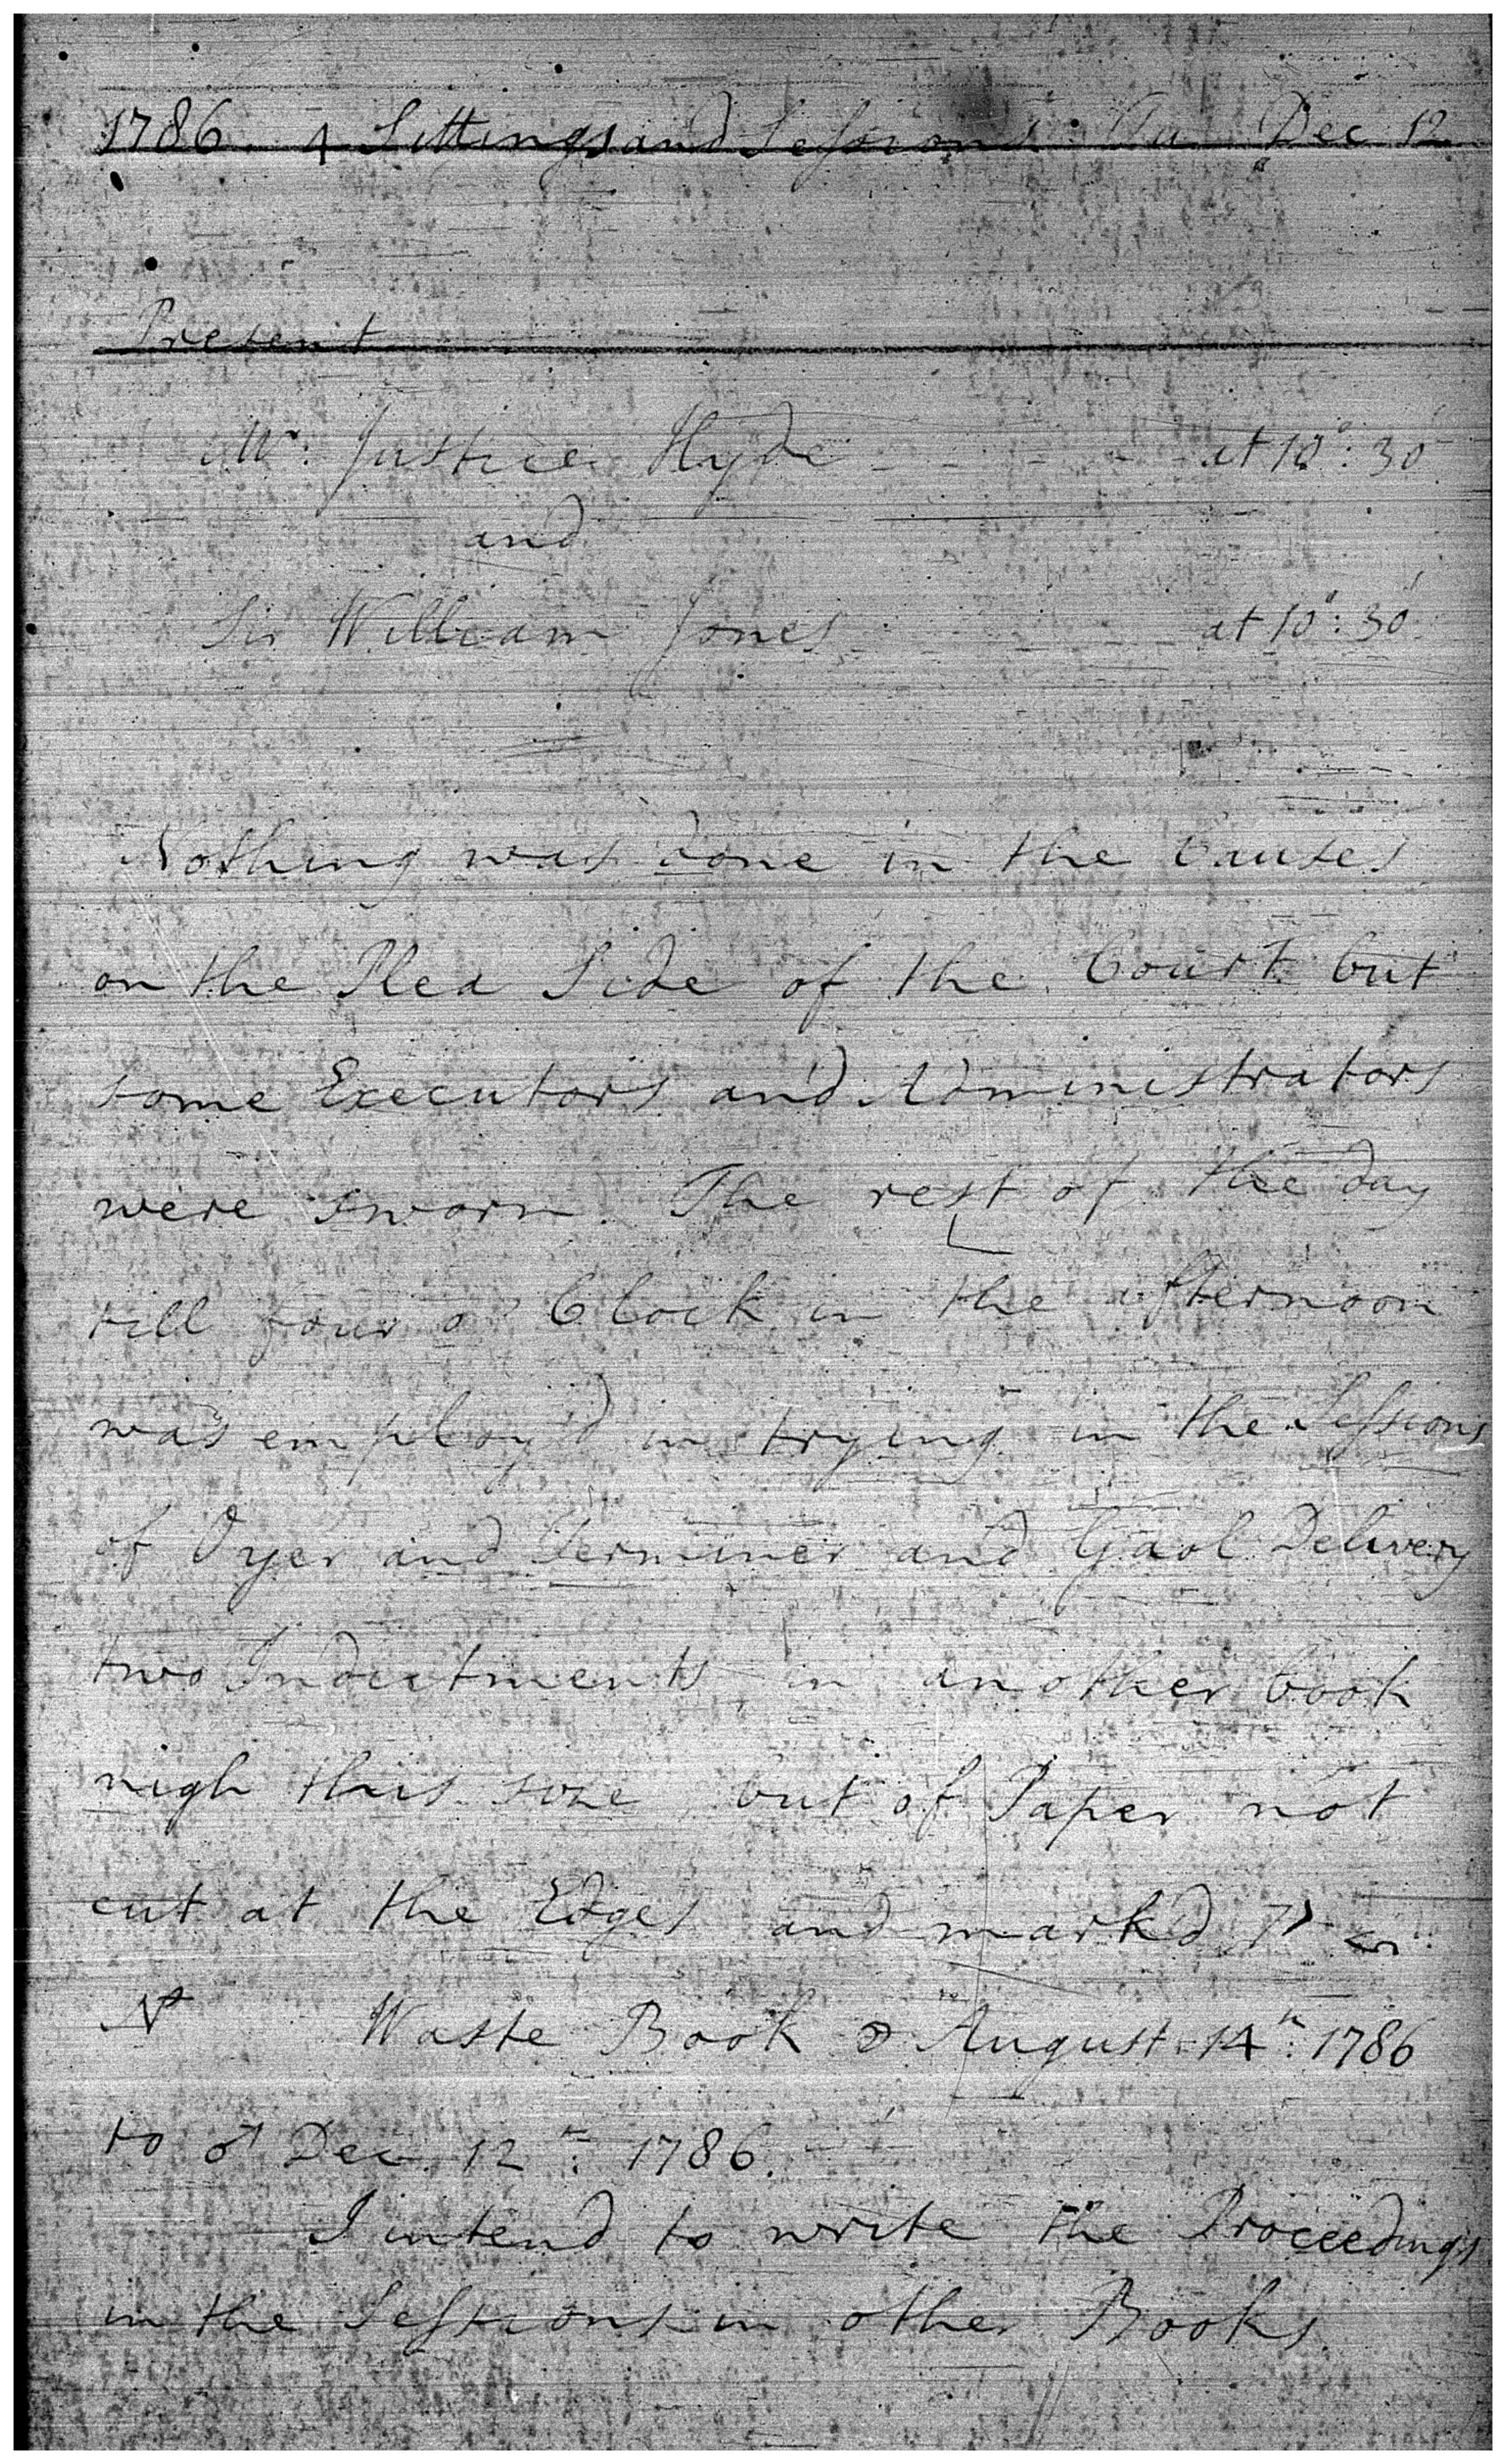 1786. 4 Sittings and Sessions. Tu Dec 12
Present
Mr. Justice Hyde - - - - - at 10°: 30'
and
Sir William Jones - - - - at 10°: 30'
Nothing was done in the Causes
on the Plea Side of the Court but
some Executors and Administrators
were sworn. The rest of the day
till four o' Clock in the afternoon
was employ'd in trying in the Sessions
of Oyer and Terminer and Gaol Delivery
two Indictments in another book
nigh this size but of Paper not
cut at the Edges and mark'd
Waste Book August 14th: 1786
to ♂ Dec. 12th: 1786.
I intend to write the Proceedings
in the Sessions in other Books.